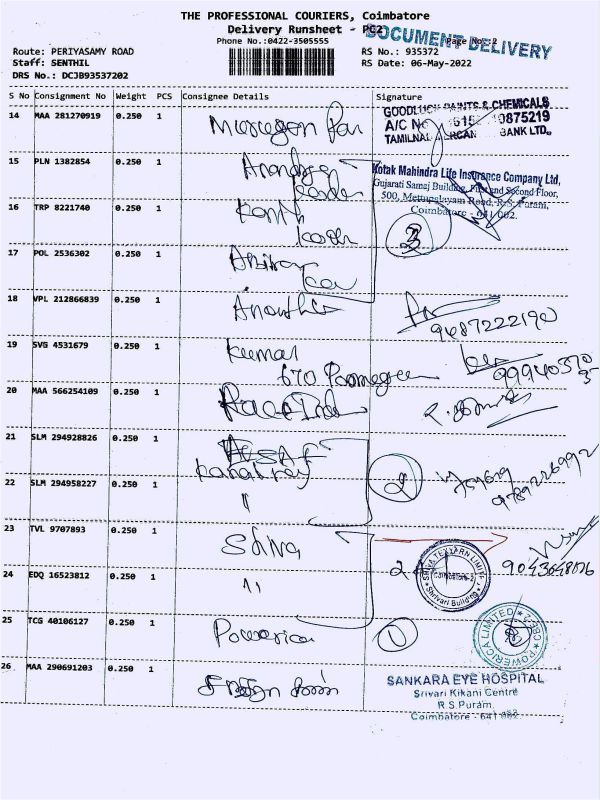 THE PROFESSIONAL COURIERS, Coimbatore
Delivery Runsheet - PC2
Phone No.:0422-3505555
Page No.:2
DOCUMENT DELIVERY
Route: PERIYASAMY ROAD
RS No.: 935372
Staff: SENTHIL
RS Date: 06-May-2022
DRS No.: DCJB93537202
S No Consignment No Weight PCS Consignee Details Signature
14 MAA 281270919 0.250 1
GOODLUCK PAINTS & CHEMICALS
A/C No 0875219
TAMILNAD MERCAN BANK LTD.
15 PLN 1382854 0.250 1
Kotak Mahindra Life Insurance Company Ltd,
Gujarati Samaj Building, First and Second Floor,
500, Mettupalayam Road, R.S. Puram,
Coimbatore - 641 002.
16 TRP 8221740 0.250 1 3
17 POL 2536302 0.250 1
18 VPL 212866839 0.250 1
9487222190
19 SVG 4531679 0.250 1 Kumar
670
20 MAA 566254109 0.250 1
21 SLM 294928826 0.250 1
22 SLM 294958227 0.250 1 " 2
9789226992
23 TVL 9707893 0.250 1 Shiva
24 EDQ 16523812 0.250 1 " 2
SHIVA TEXYARN LIMITED
COIMBATORE-2
Shrivari Building
9043648176
25 TCG 40106127 0.250 1 Powerica 1
POWERICA LIMITED
CBE-2
26 MAA 290691203 0.250 1
SANKARA EYE HOSPITAL
Srivari Kikani Centre
R.S.Puram,
Coimbatore - 641 002.